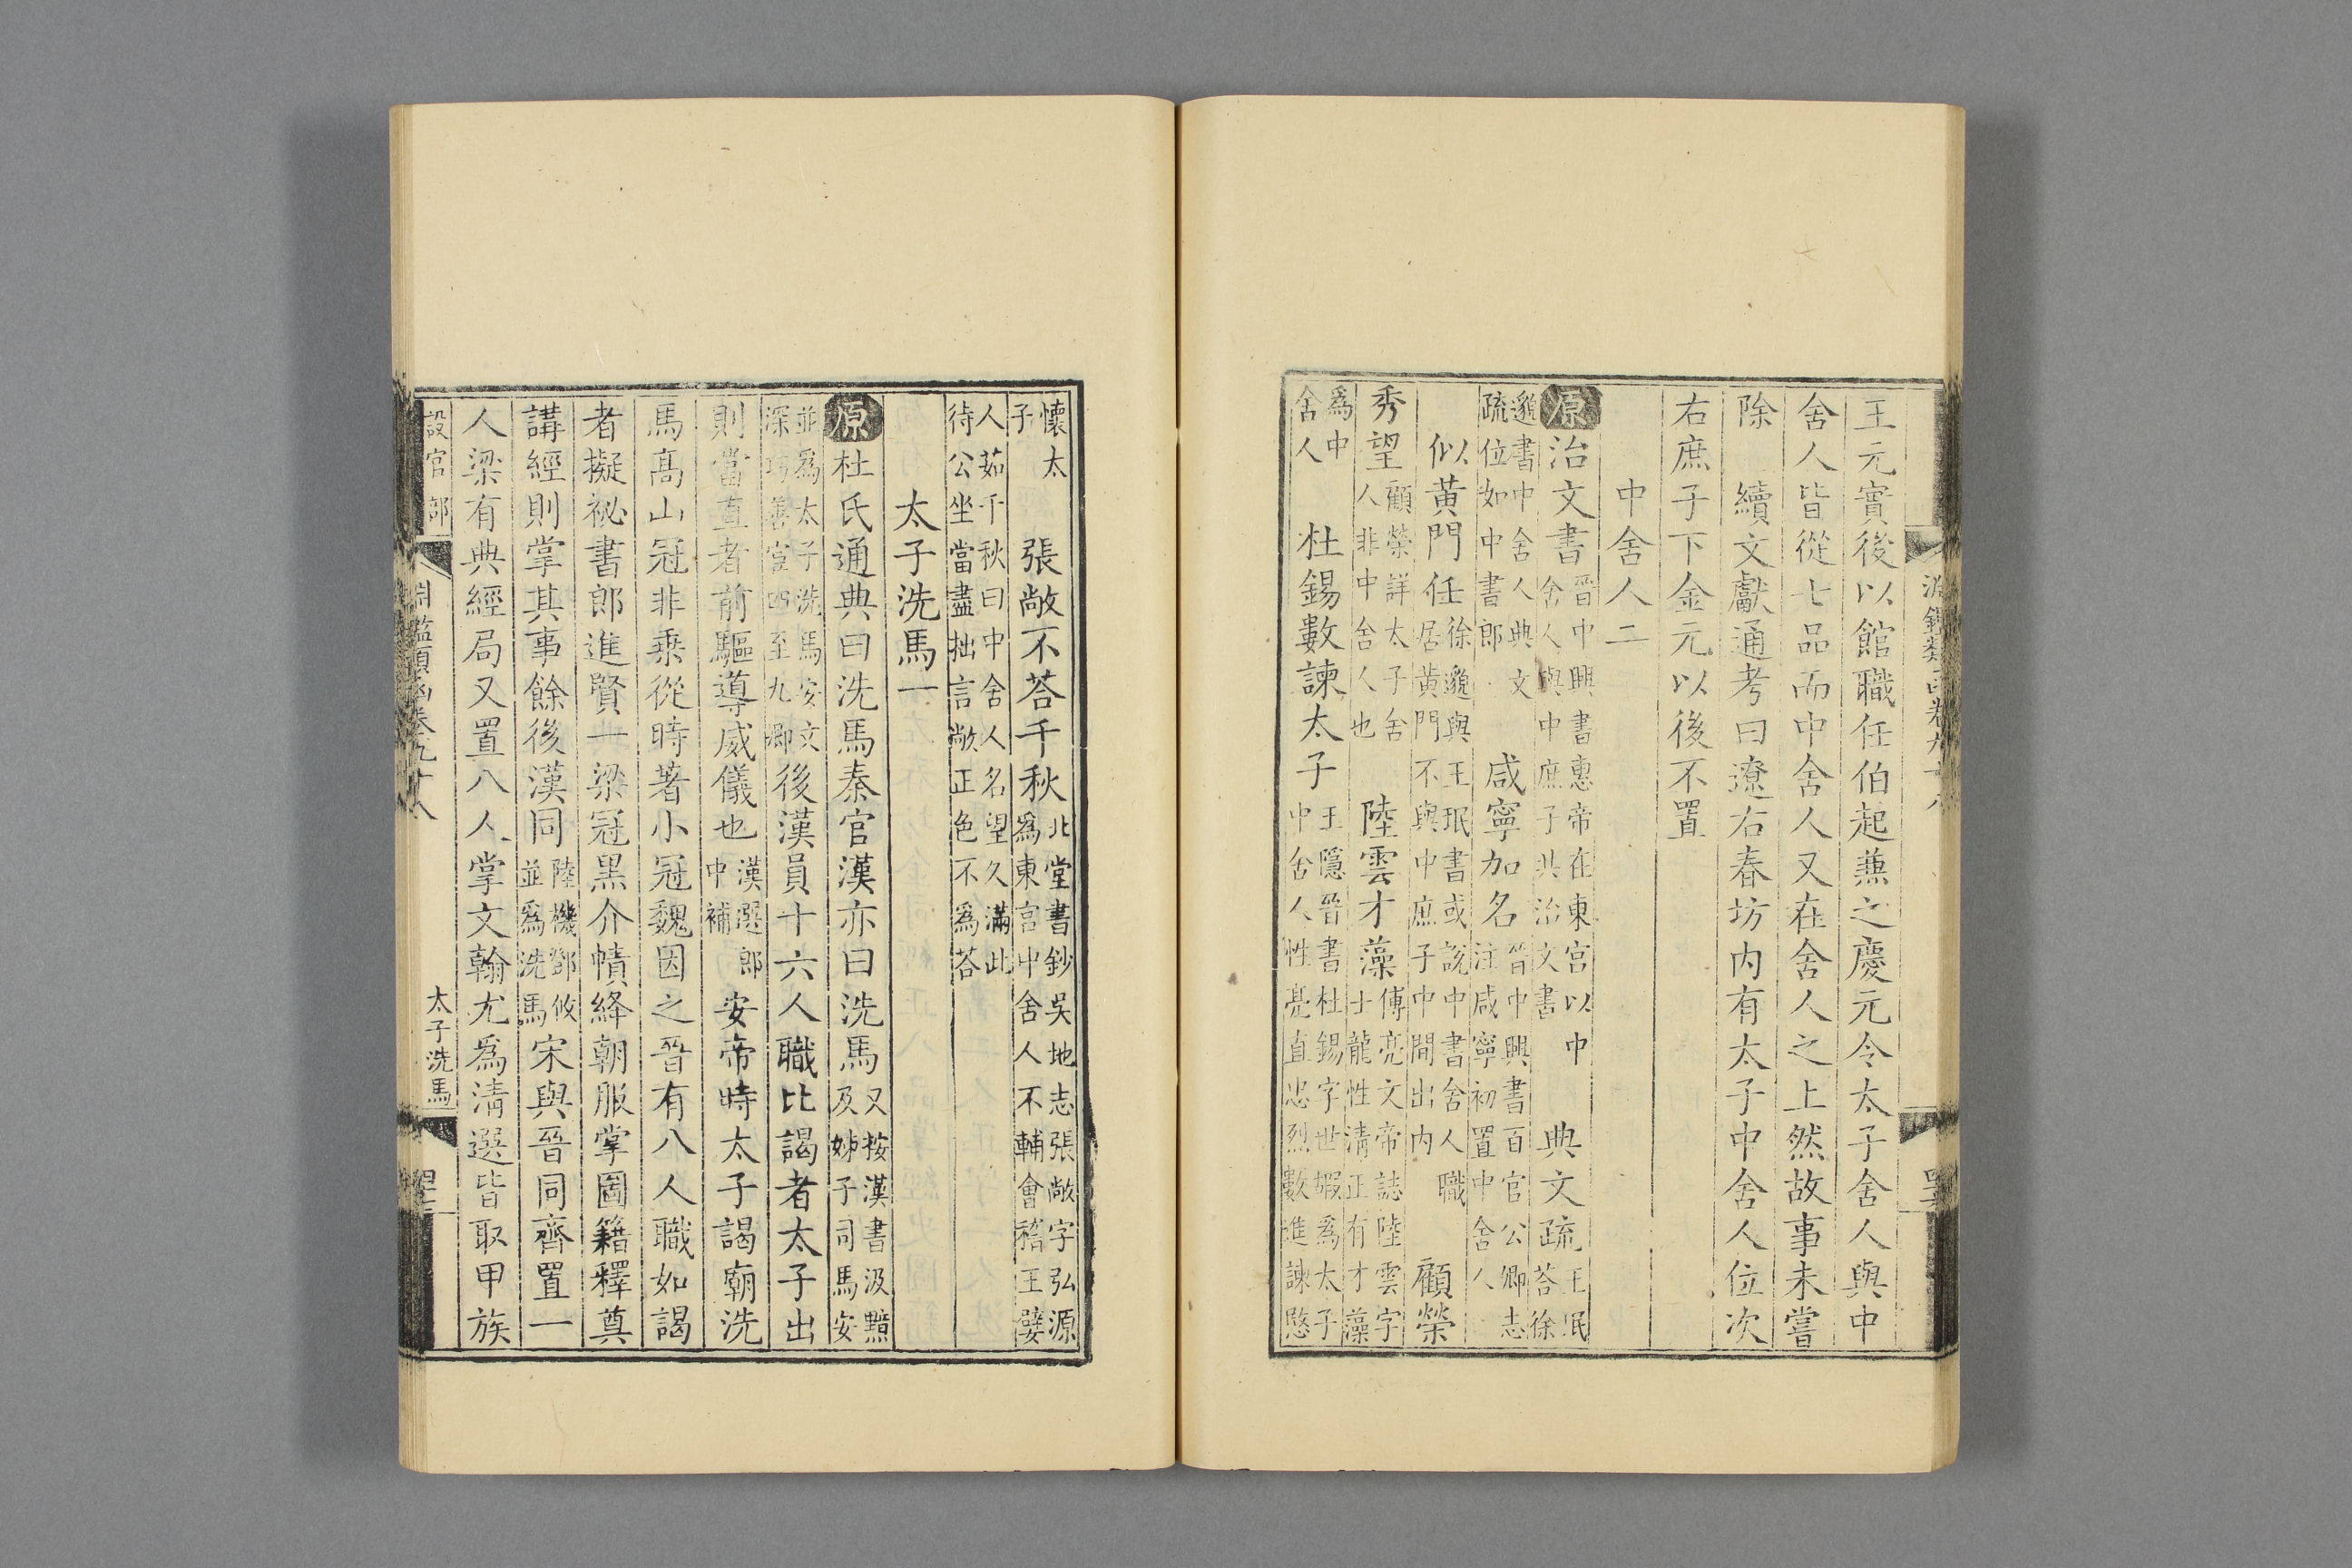 王元實後以館職任伯起兼之慶元令太子舍人與中
舍人皆從七品而中舍人又在舍人之上然故事未嘗
除　續文獻通考曰遼右春坊内有太子中舍人位次
右庶子下金元以後不置
中舍人二
原治文書晉中興書惠帝在東宮以中舍人與中庶子共治文書　典文疏王珉荅徐
邈書中舍人典文疏位如中書郎　咸寧加名晉中興書百官公卿志注咸寧初置中舍人
似黃門任徐邈與王珉書或說中書舍人職居黃門不與中庶子中間出内　顧榮
秀望顧榮詳太子舍人非中舍人也　陸雲才藻傅亮文帝誌陸雲字士龍性清正有才藻
爲中舍人　杜錫數諫太子王隱晉書杜錫字世嘏爲太子中舍人性亮直忠烈數進諫愍
懷太子　張敞不荅千秋北堂書鈔吳地志張敞字弘源爲東宮中舍人不輔會稽王嬖
人茹千秋曰中舍人名望久滿此待公坐當盡拙言敞正色不爲荅
太子洗馬一
原杜氏通典曰洗馬秦官漢亦曰洗馬又按漢書汲黯及姊子司馬安
並爲太子洗馬安文深巧善宦四至九卿後漢員十六人職比謁者太子出
則當直者前驅導威儀也漢選郎中補安帝時太子謁廟洗
馬高山冠非乘從時著小冠魏因之晉有八人職如謁
者擬祕書郎進賢一梁冠黑介幘絳朝服掌圖籍釋奠
講經則掌其事餘後漢同陸機鄧攸並爲洗馬宋與晉同齊置一
人梁有典經局又置八人掌文翰尤爲清選皆取甲族
設官部
淵鑑類函卷九十八
太子洗馬